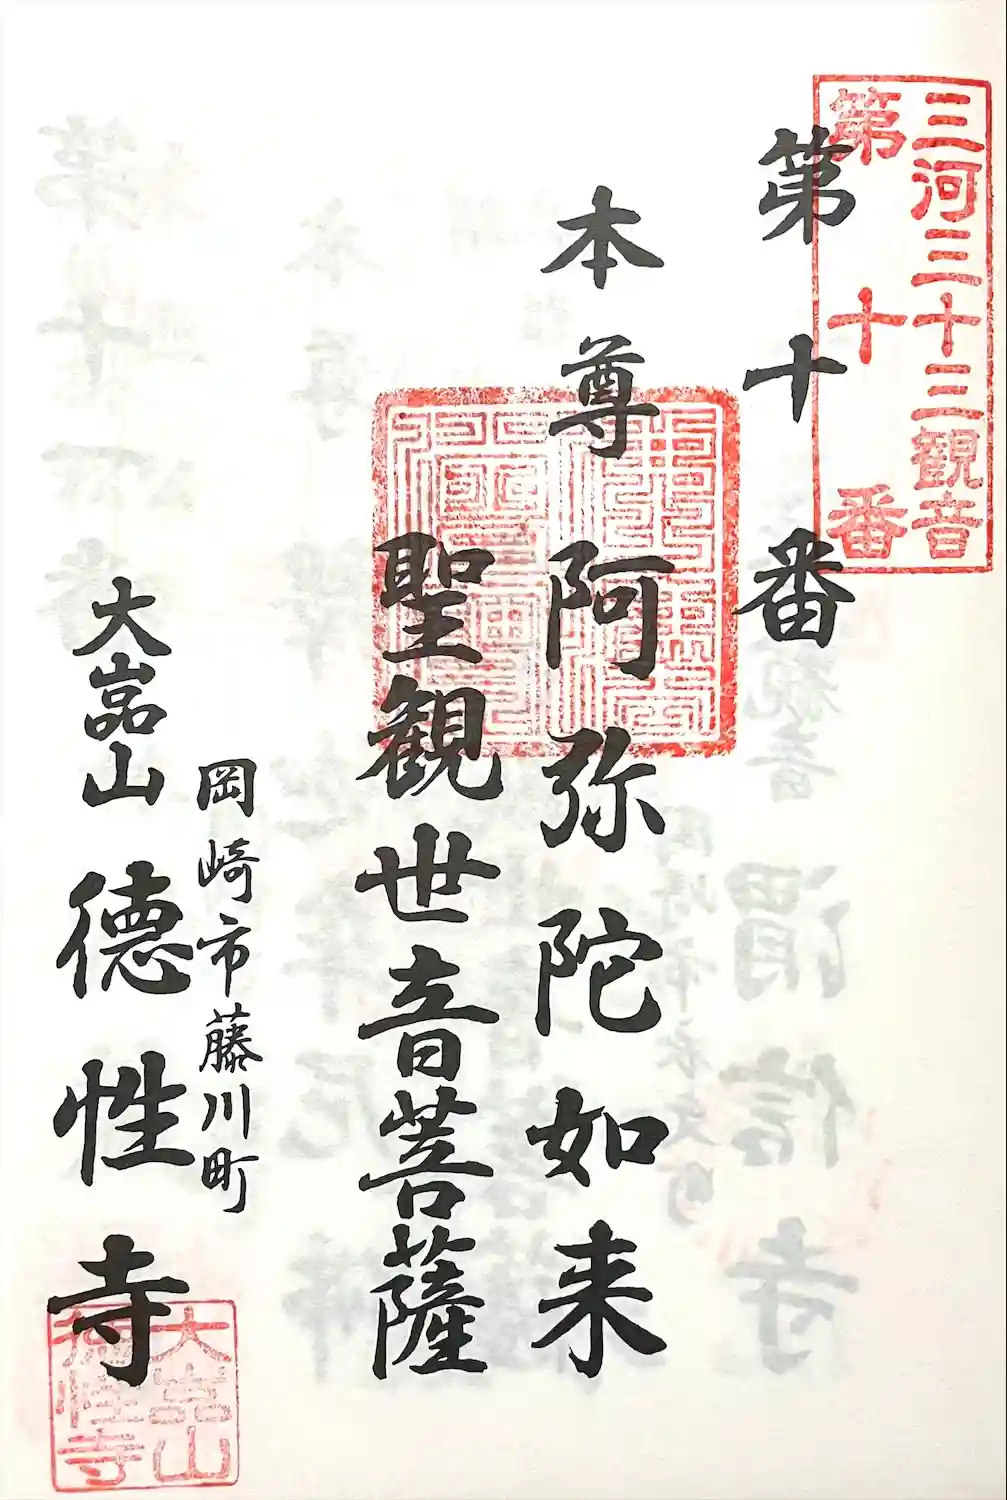 三河三十三観音
第十番
第十番
本尊阿弥陀如来
聖観世音菩薩
岡崎市藤川町
大嵓山徳性寺
大嵓山
徳性寺